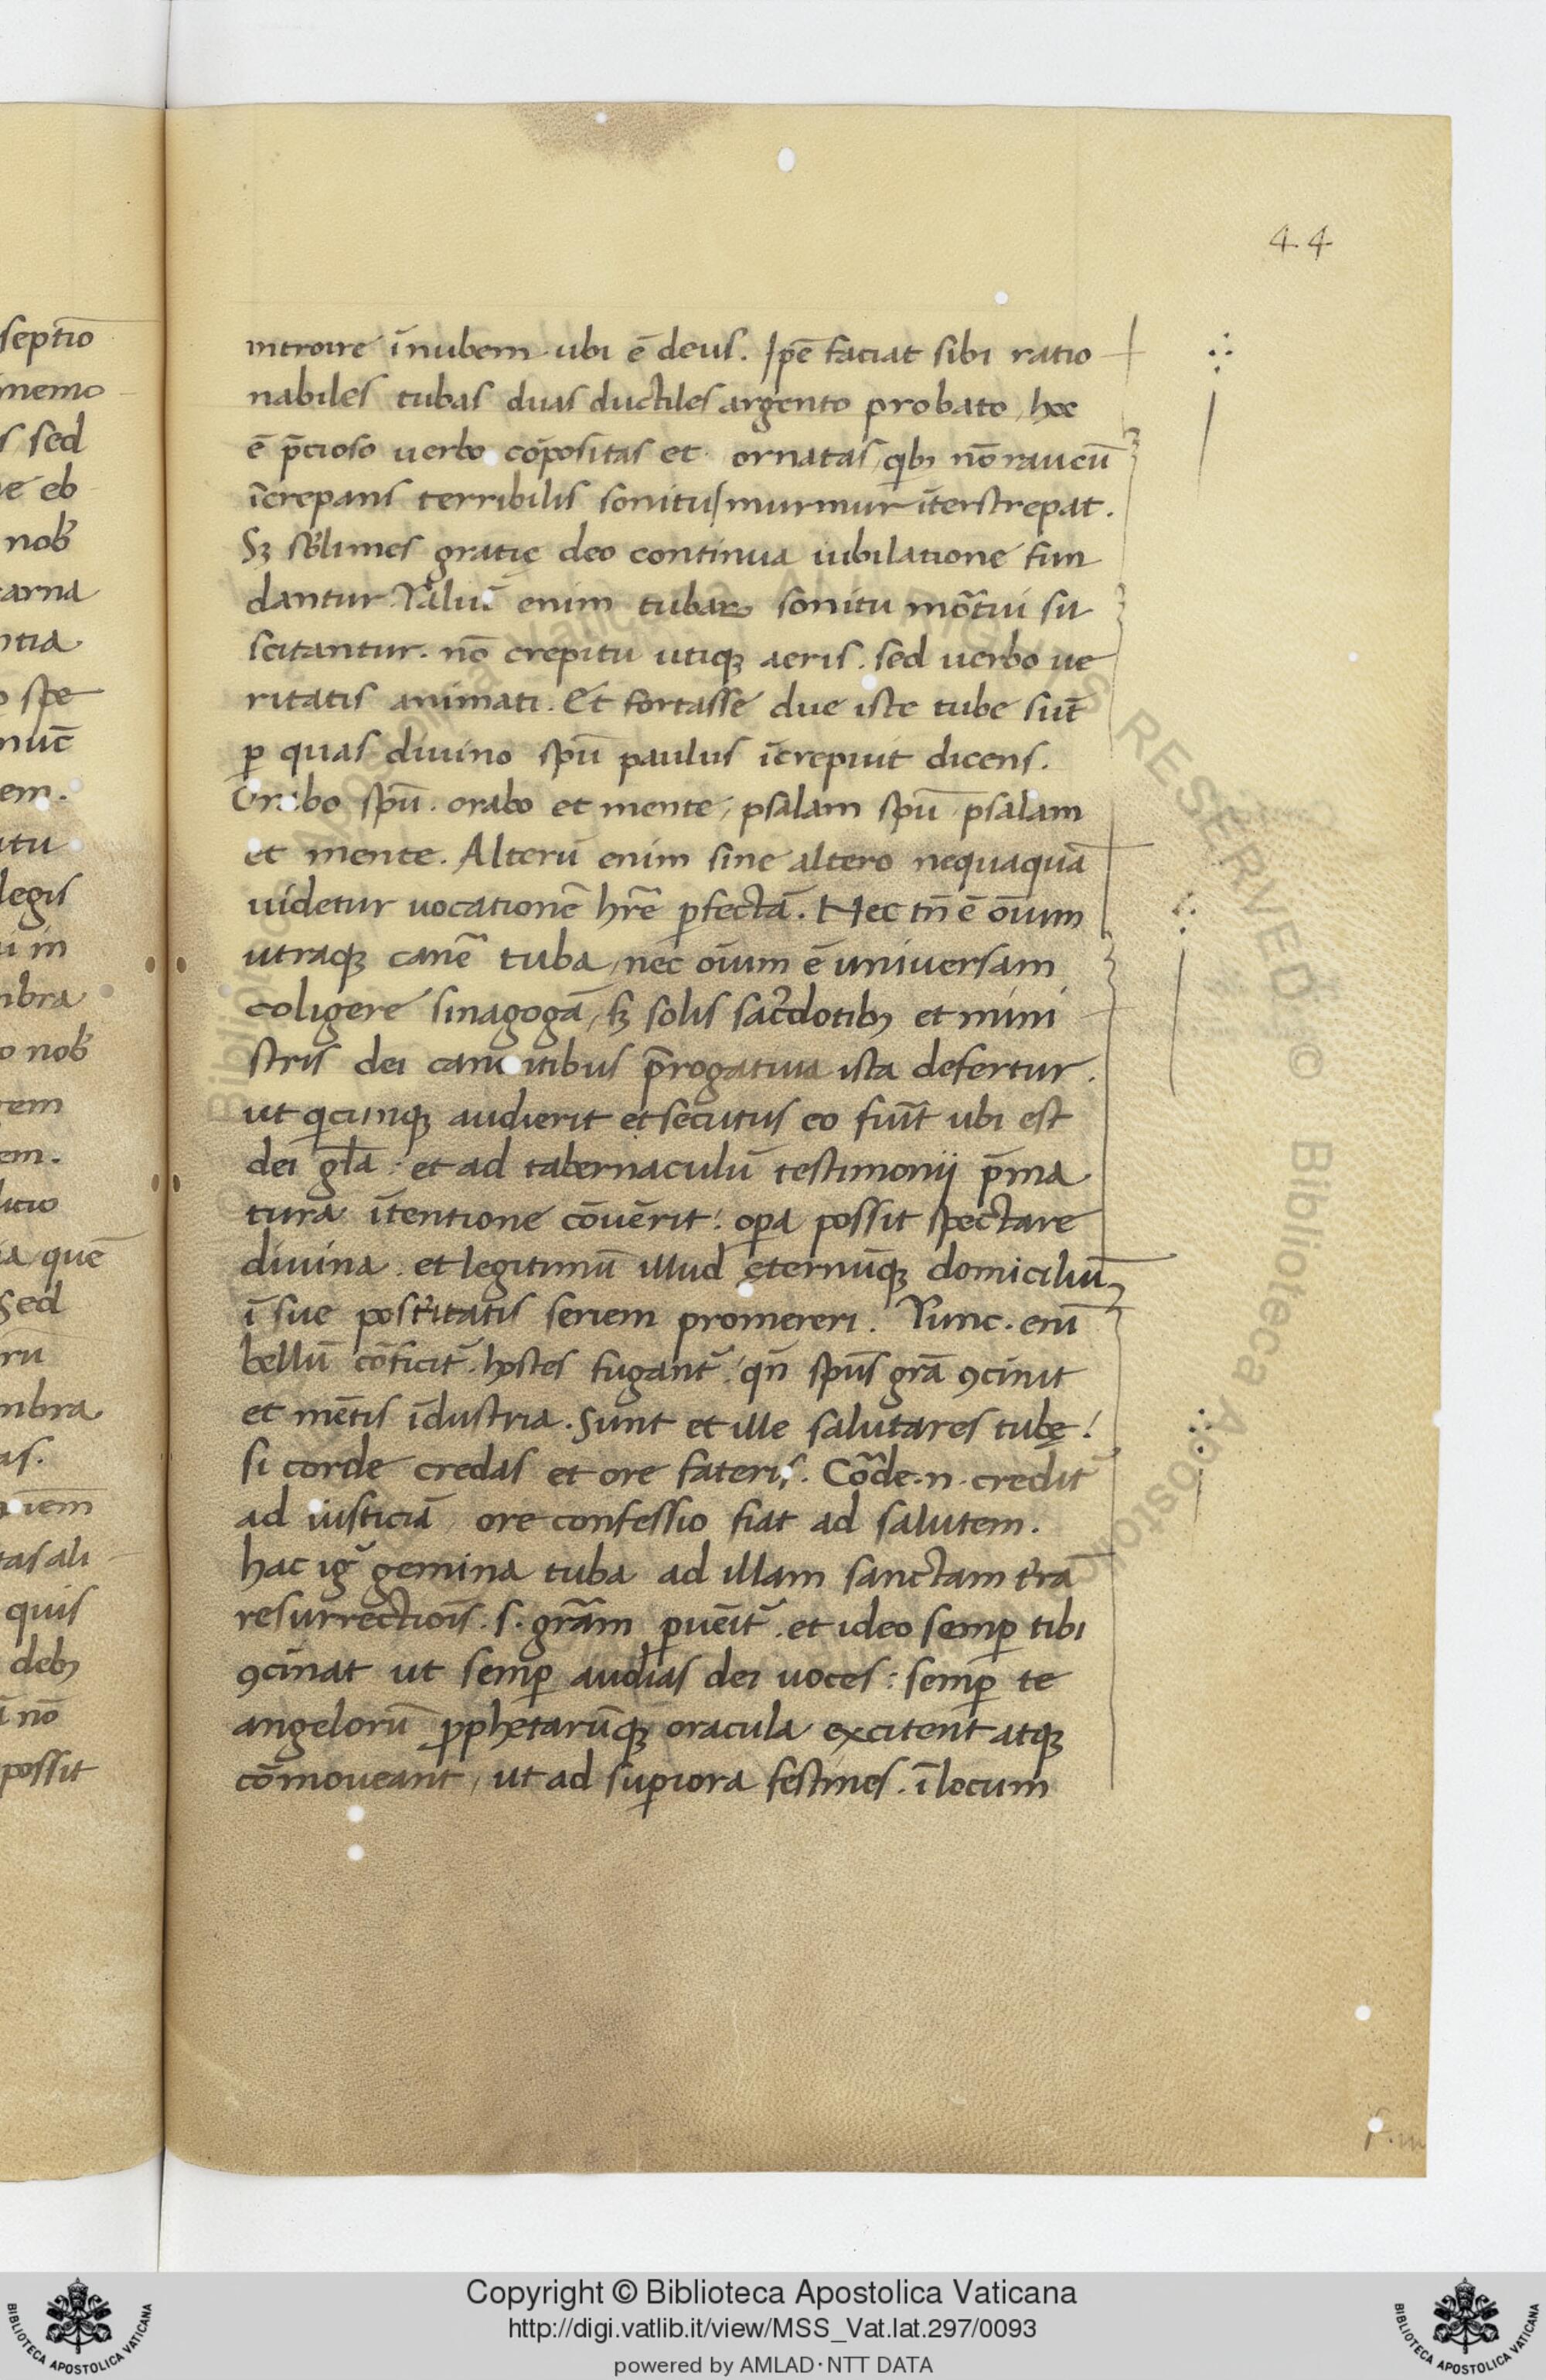 44
septio
nemo
s sed
ue eb
nob̃
carna
ntia
o spe
nuc̄
em.
utu
legis
ui in
mbra
o nob̃
rem
em.
licio
ia quē
Sed
rū
mbra
as.
iem
tas ali
quis
deb;
nō
possit
introire ī nubem ubi ē deus. Ipē faciat sibi ratio
nabiles tubas duas ductiles argento probato, hoc
ē p̄cioso uerbo cōpositas et ornatas, qib; nō raucū
īcrepans terribilis sonitus murmur īterstrepat.
Sꝫ sb̃limes gratię deo continua iubilatione fun
dantur. Taliū enim tubaꝝ sonitu mōtui su
scitantur. nō crepitu utiqꝫ aeris. sed uerbo ue
ritatis animati. Et fortasse due iste tube sūt
ꝑ quas diuino spū paulus īcrepuit dicens.
Orabo spū. orabo et mente, psalam spū psalam
et mente. Alterū enim sine altero nequaquā
uidetur uocationē hr̄e ꝑfectā. Nec tn̄ ē oīum
utraqꝫ canē tuba, nec oīum ē uniuersam
coligere sinagogā, sꝫ solis sac̃dotib; et mini
stris dei canentibus p̄rogatiua ista defertur.
ut qicunqꝫ audierit et secutus eo fuīt ubi est
dei gl̄a: et ad tabernaculū testimonij p̄ma
tura ītentione cōuērit: oꝑa possit spectare
diuina. et legitimū illud ęternūqꝫ domiciliū
ī sue post̃itatis seriem promereri. Tunc. enī
bellū cōficit̃. hostes fugant̃. qn̄ spūs grā ꝯcinit
et mētis īdustria. Sunt et ille salutares tubę!
si corde credas et ore fateris. Cōde .n. credit
ad iusticiā, ore confessio fiat ad salutem.
hac ig̃ gemina tuba ad illam sanctam t̃rā
resurrectiōis .s. grām ꝑuēit̃. et ideo semꝑ tibi
ꝯcinat ut semꝑ audias dei uoces: semꝑ te
angelorū ꝓphetarūqꝫ oracula excitent atqꝫ
cōmoueant, ut ad suꝑiora festines. ī locum
Copyright © Biblioteca Apostolica Vaticana
http://digi.vatlib.it/view/MSS_Vat.lat.297/0093
powered by AMLAD·NTT DATA
BIBLIOTECA APOSTOLICA VATICANA
BIBLIOTECA APOSTOLICA VATICANA